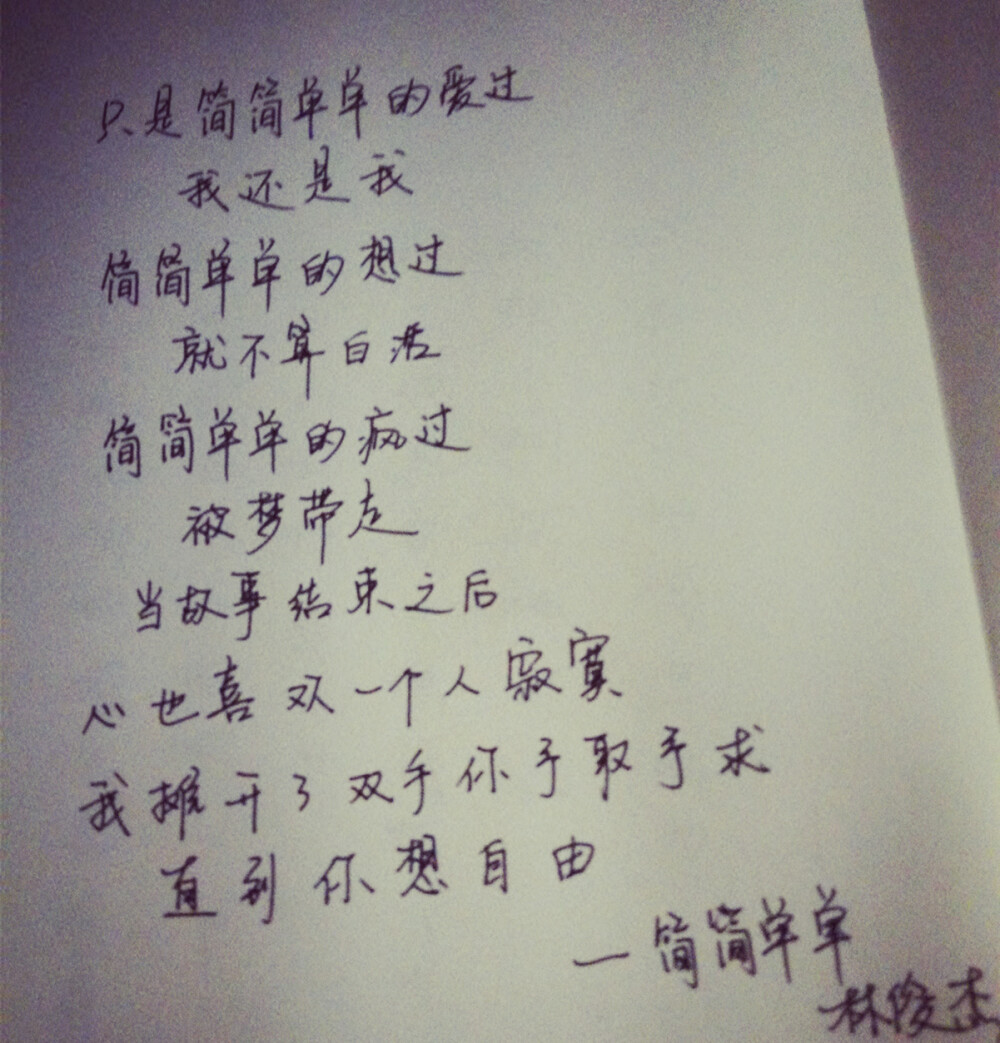 只是简简单单的爱过
我还是我
简简单单的想过
就不算白活
简简单单的疯过
被梦带走
当故事结束之后
心也喜欢一个人寂寞
我摊开了双手你予取予求
直到你想自由
—简简单单
林俊杰